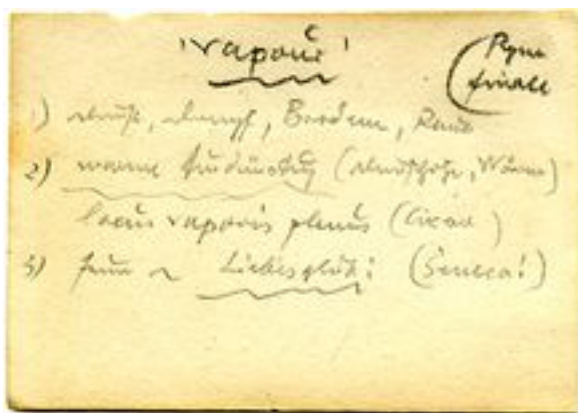 'vapour'
1) Dunst, Dampf, Brodem, Rauch
2) warme Ausdünstung (Dunsthöhe, Wärme)
locus vaporis plenus (Cicero)
3) Liebesglut: (Seneca!)